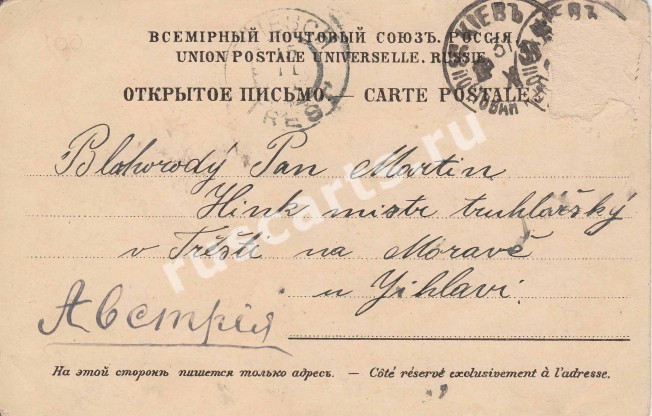 ВСЕМІРНЫЙ ПОЧТОВЫЙ СОЮЗЪ. РОССІЯ
UNION POSTALE UNIVERSELLE. RUSSIE
ОТКРЫТОЕ ПИСЬМО. — CARTE POSTALE
КІЕВЪ
Blahorodý Pan Martin
Hink mistr truhlářský
v Třešti na Moravě
u Jihlavi
Австрія
На этой сторонѣ пишется только адресъ. — Côté réservé exclusivement à l'adresse.
ruscarts.ru